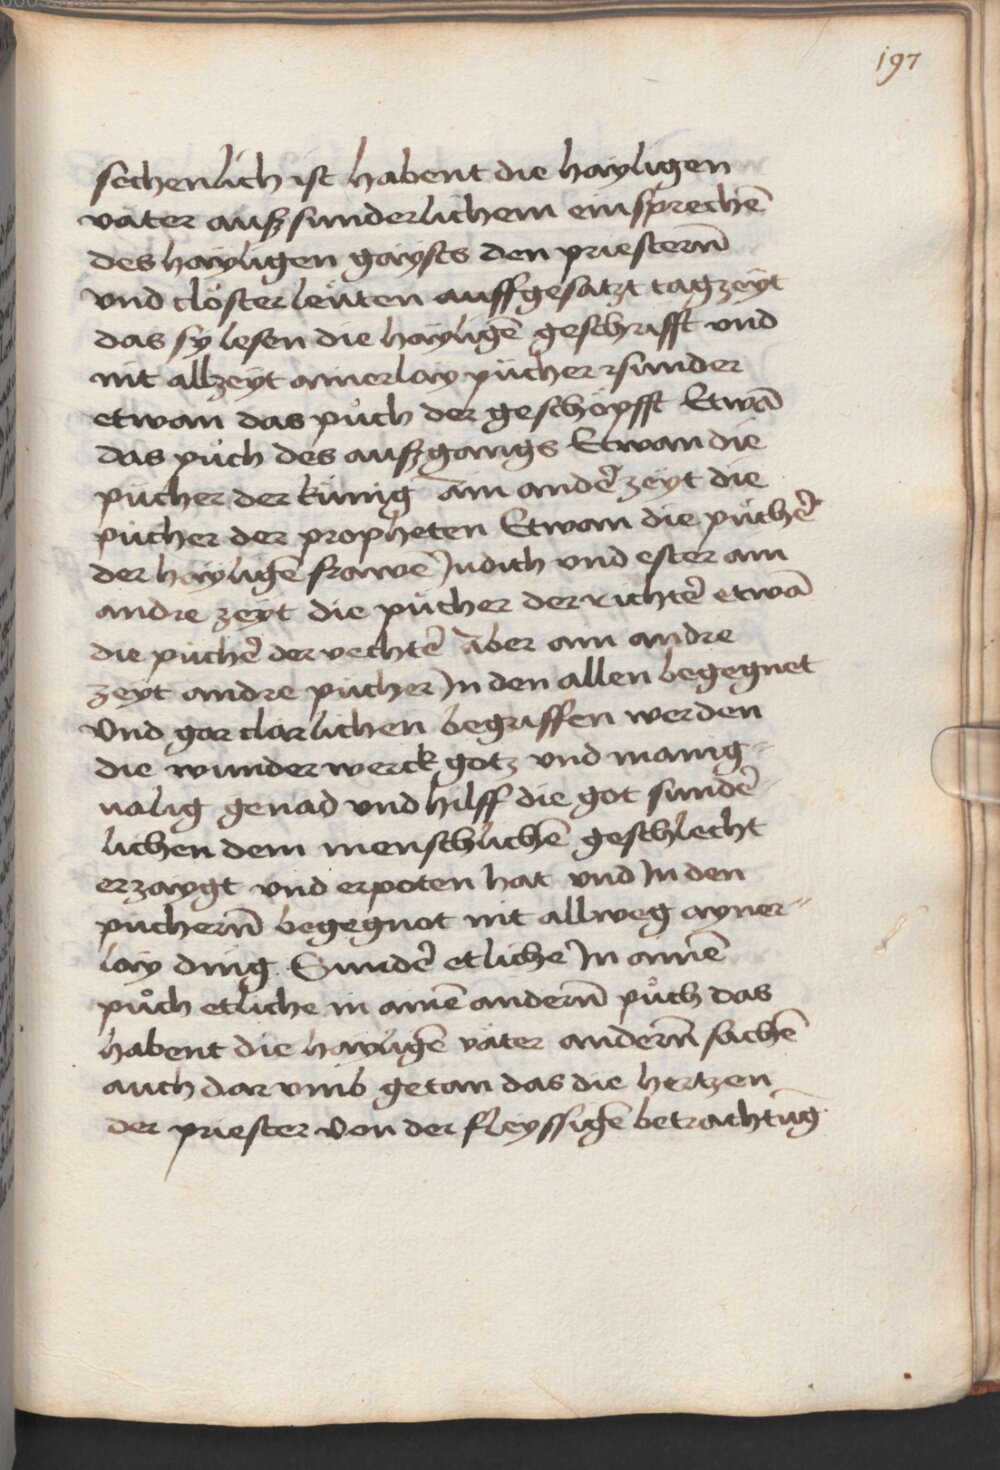 197
sechenlich ist habent die hayligen
väter auß sunderlichem einsprechē
des hayligen gaysts den priesternn̄
vnd clöster leüten auffgesatzt tagzeyt
das sy lesen die hayligē geschrifft vnd
nit allzeyt ainerlay pücher sunder
etwan das půch der geschöpfft Etwā
das půch des außgangs Etwan die
pücher der künig Am andē zeyt die
pücher der propheten Etwan die püchē
der hayligē frawē Judich vnd ester am
andre zeyt die pücher der richtē etwā
die püchē der rechtē Aber ain andre
zeyt andre pücher In den allen begegnet
Vnd gar clarlichen begriffen werden
die wunder werck gotz vnd manig-
ualig genad vnd hilff die got sundē
lichen dem menschlichē geschlecht
erzaygt vnd erpoten hat vnd In den
püchernn̄ begegnot nit allweg ayner-
lay ding Sundē etliche In ainē
půch etliche in ainē andernn̄ půch das
habent die hayligē väter andernn̄ sachē
auch dar vmb getan das die hertzen
der priester Von der fleyssigē betrachtūg